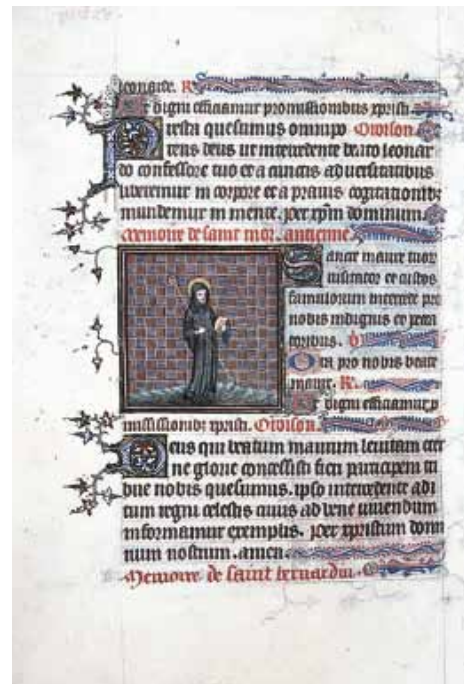 leonarde. R
Ut digni efficiamur promissionibus xpristi
Presta quesumus omnipo Orison.
tens deus ut intercedente beato leonar
do confessore tuo et a cunctis adversitatibus
liberemur in corpore et a pravis cogitationibz
mundemur in mente. per xpm dominum
memoire de saint mor. antienne
Sancte maure tuor
visitator et custos
famulorum intercede pro
nobis indignis et pecca
toribus.
Ora pro nobis beate
maure. R.
Ut digni efficiamur p
missionibz xpristi. Orison.
Deus qui beatum maurum levitam eter
ne glorie concessisti fieri participem tri
bue nobis quesumus. ipso intercedente adi
tum regni celestis cuius ad bene vivendum
informamur exemplis. per xpristum domi
num nostrum. amen
Memoire de saint bernardin.